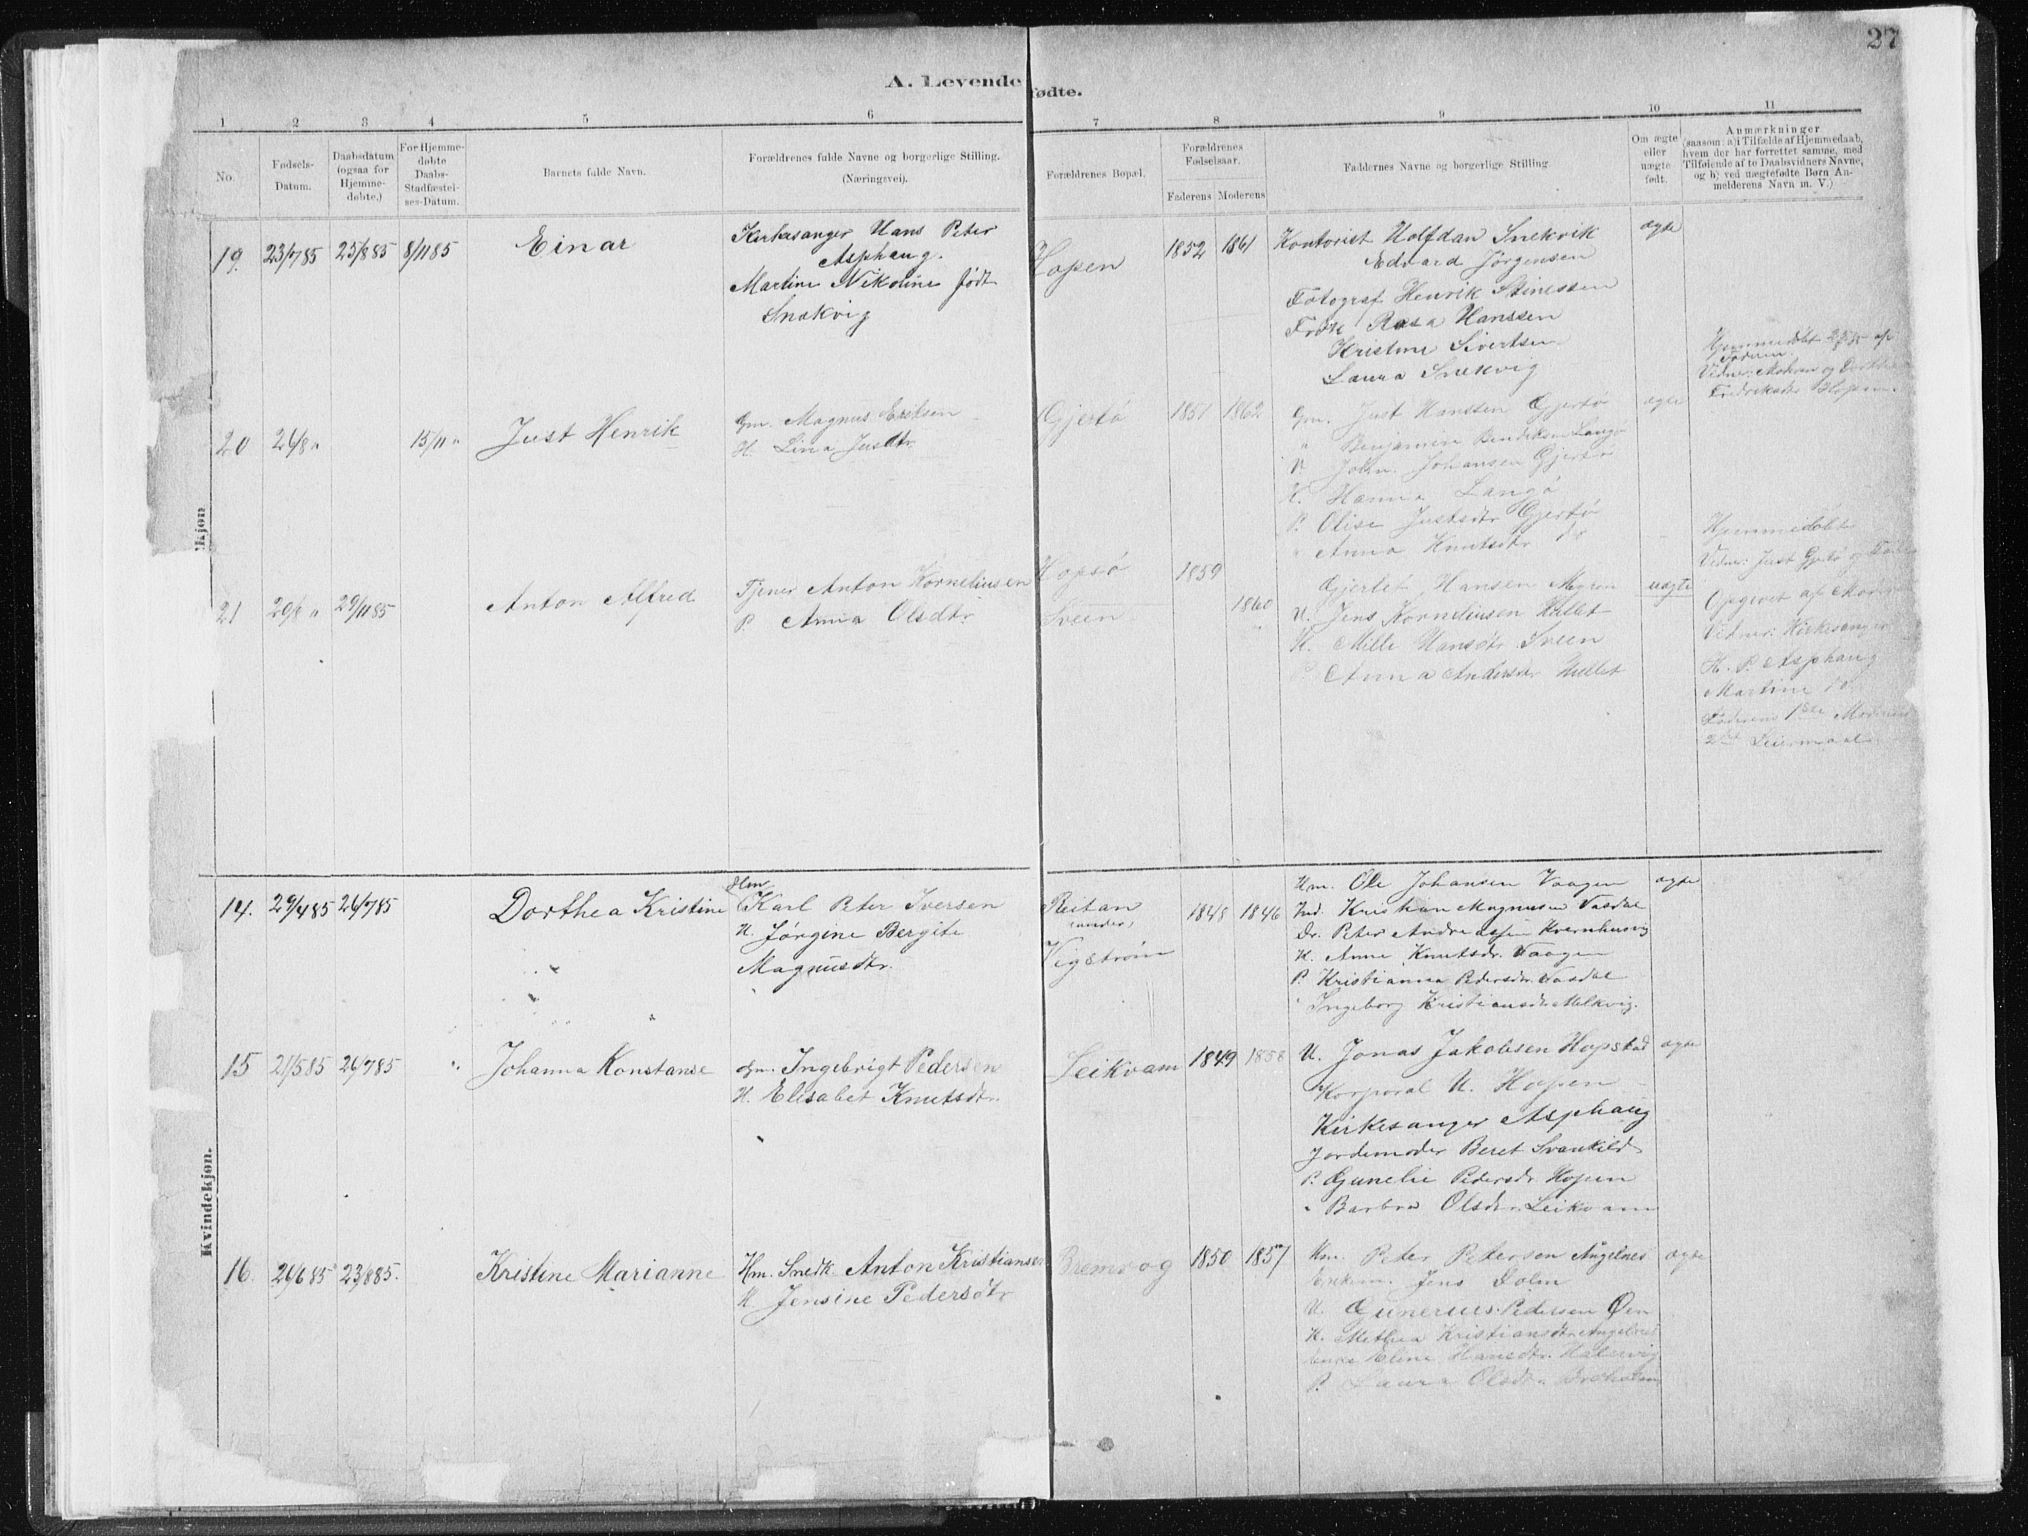 27
A. Levendefødte.
1 2 3 4 5 6 7 8 9 10 11
No.
Fødsels-Datum.
Daabsdatum (ogsaa for Hjemmedøbte.)
For Hjemmedøbte Daabs-Stadfæstelses-Datum.
Barnets fulde Navn.
Forældrenes fulde Navne og borgerlige Stilling. (Næringsvei).
Forældrenes Bopæl.
Forældrenes Fødselsaar.
Faderens Moderens
Faddernes Navne og borgerlige Stilling
Om ægte eller uægte født.
Anmærkninger
(saasom: a) i Tilfælde af Hjemmedaab,
hvem der har forrettet samme, med
Tilføiende af to Daabsvidners Navne,
og b) ved uægtefødte Børn An-
melderens Navn m. V.)
kjøn
19. 23/7 85 25/8 85 8/11 85 Einar
Kirkesanger Hans Peter
Asphaug.
Martine Nikoline født
Snekvig
Hopen 1852 1861
Kontorist Halfdan Snekvik
Edvard Jørgensen
Fotograf Henrik Stinessen
Frøk Rosa Hanssen
Kristine Sivertsen
Laura Snekvig
ægte
Hjemmedøbt 25/8 85 af
Faderen.
20 26/8 " 15/11 " Just Henrik
Gm. Magnus Eriksen
H. Lina Jusdtr.
Gjertø 1851 1862
Gm. Just Hanssen Gjertø
" Benjamin Bendiksen Langø
U. Johan Johansen Gjertø
K. Hanna Langø
P. Olise Justsdtr Gjertø
" Anna Knutsdtr do
ægte
Hjemmedøbt
Vidner: Just Gjertø og
21 29/8 " 29/11 85 Anton Alfred
Tjener Anton Korneliussen
P. Anna Olsdtr.
Hopsø
Sveen
1859
1860
Gjertet Hansen Myran
U. Jens Korneliussen Hullet
K. Mille Hansdtr. Sveen
P. Anna Andersdtr Hullet
uægte
Opgivet af Moder
Vidner: Kirkesanger
H. P. Asphaug
Martine do.
Faderens 1ste Moderens
2det Leiermaal
Kvindekjøn.
14. 29/4 85 26/7 85 Dorthea Kristine
Hm
Karl Peter Iversen
H. Jørgine Bergite
Magnusdtr.
Reitan
under
Vigstrøm
1848 1846
Hm. Ole Johansen Vaagen
Ind. Kristian Magnusen Vasdal
Dr. Peter Andreassen Kvernhusvig
H. Anne Knutsdr. Vaagen
P. Kristianna Pedersdr. Vasdal
" Ingeborg Kristiansdtr Melkvig.
ægte
15 21/5 85 26/7 85 " Johanna Konstanse
Gm. Ingebrigt Pedersen
H. Elisabet Knutsdtr.
Leikvam 1849 1858
U. Jonas Jakobsen Hopstad
Korporal U. Hopen
Kirkesanger Asphaug
Jordemoder Beret Svankild
P. Gunelie Pedersdr. Hopen
" Barbro Olsdtr. Leikvam
ægte
16. 26/6 85 23/8 85. Kristine Marianne
Hm. Snedk. Anton Kristiansen
H. Jensine Pedersdtr
Bremvog 1850 1857
Hm. Peter Petersen Angelnes
Enkem. Jens Dolm
U. Gunerius Pedersen Øen
K. Methea Kristiansdtr Angelnes
Enke Eline Hansdtr. Hatervig
P. Laura Olsdtr
ægte